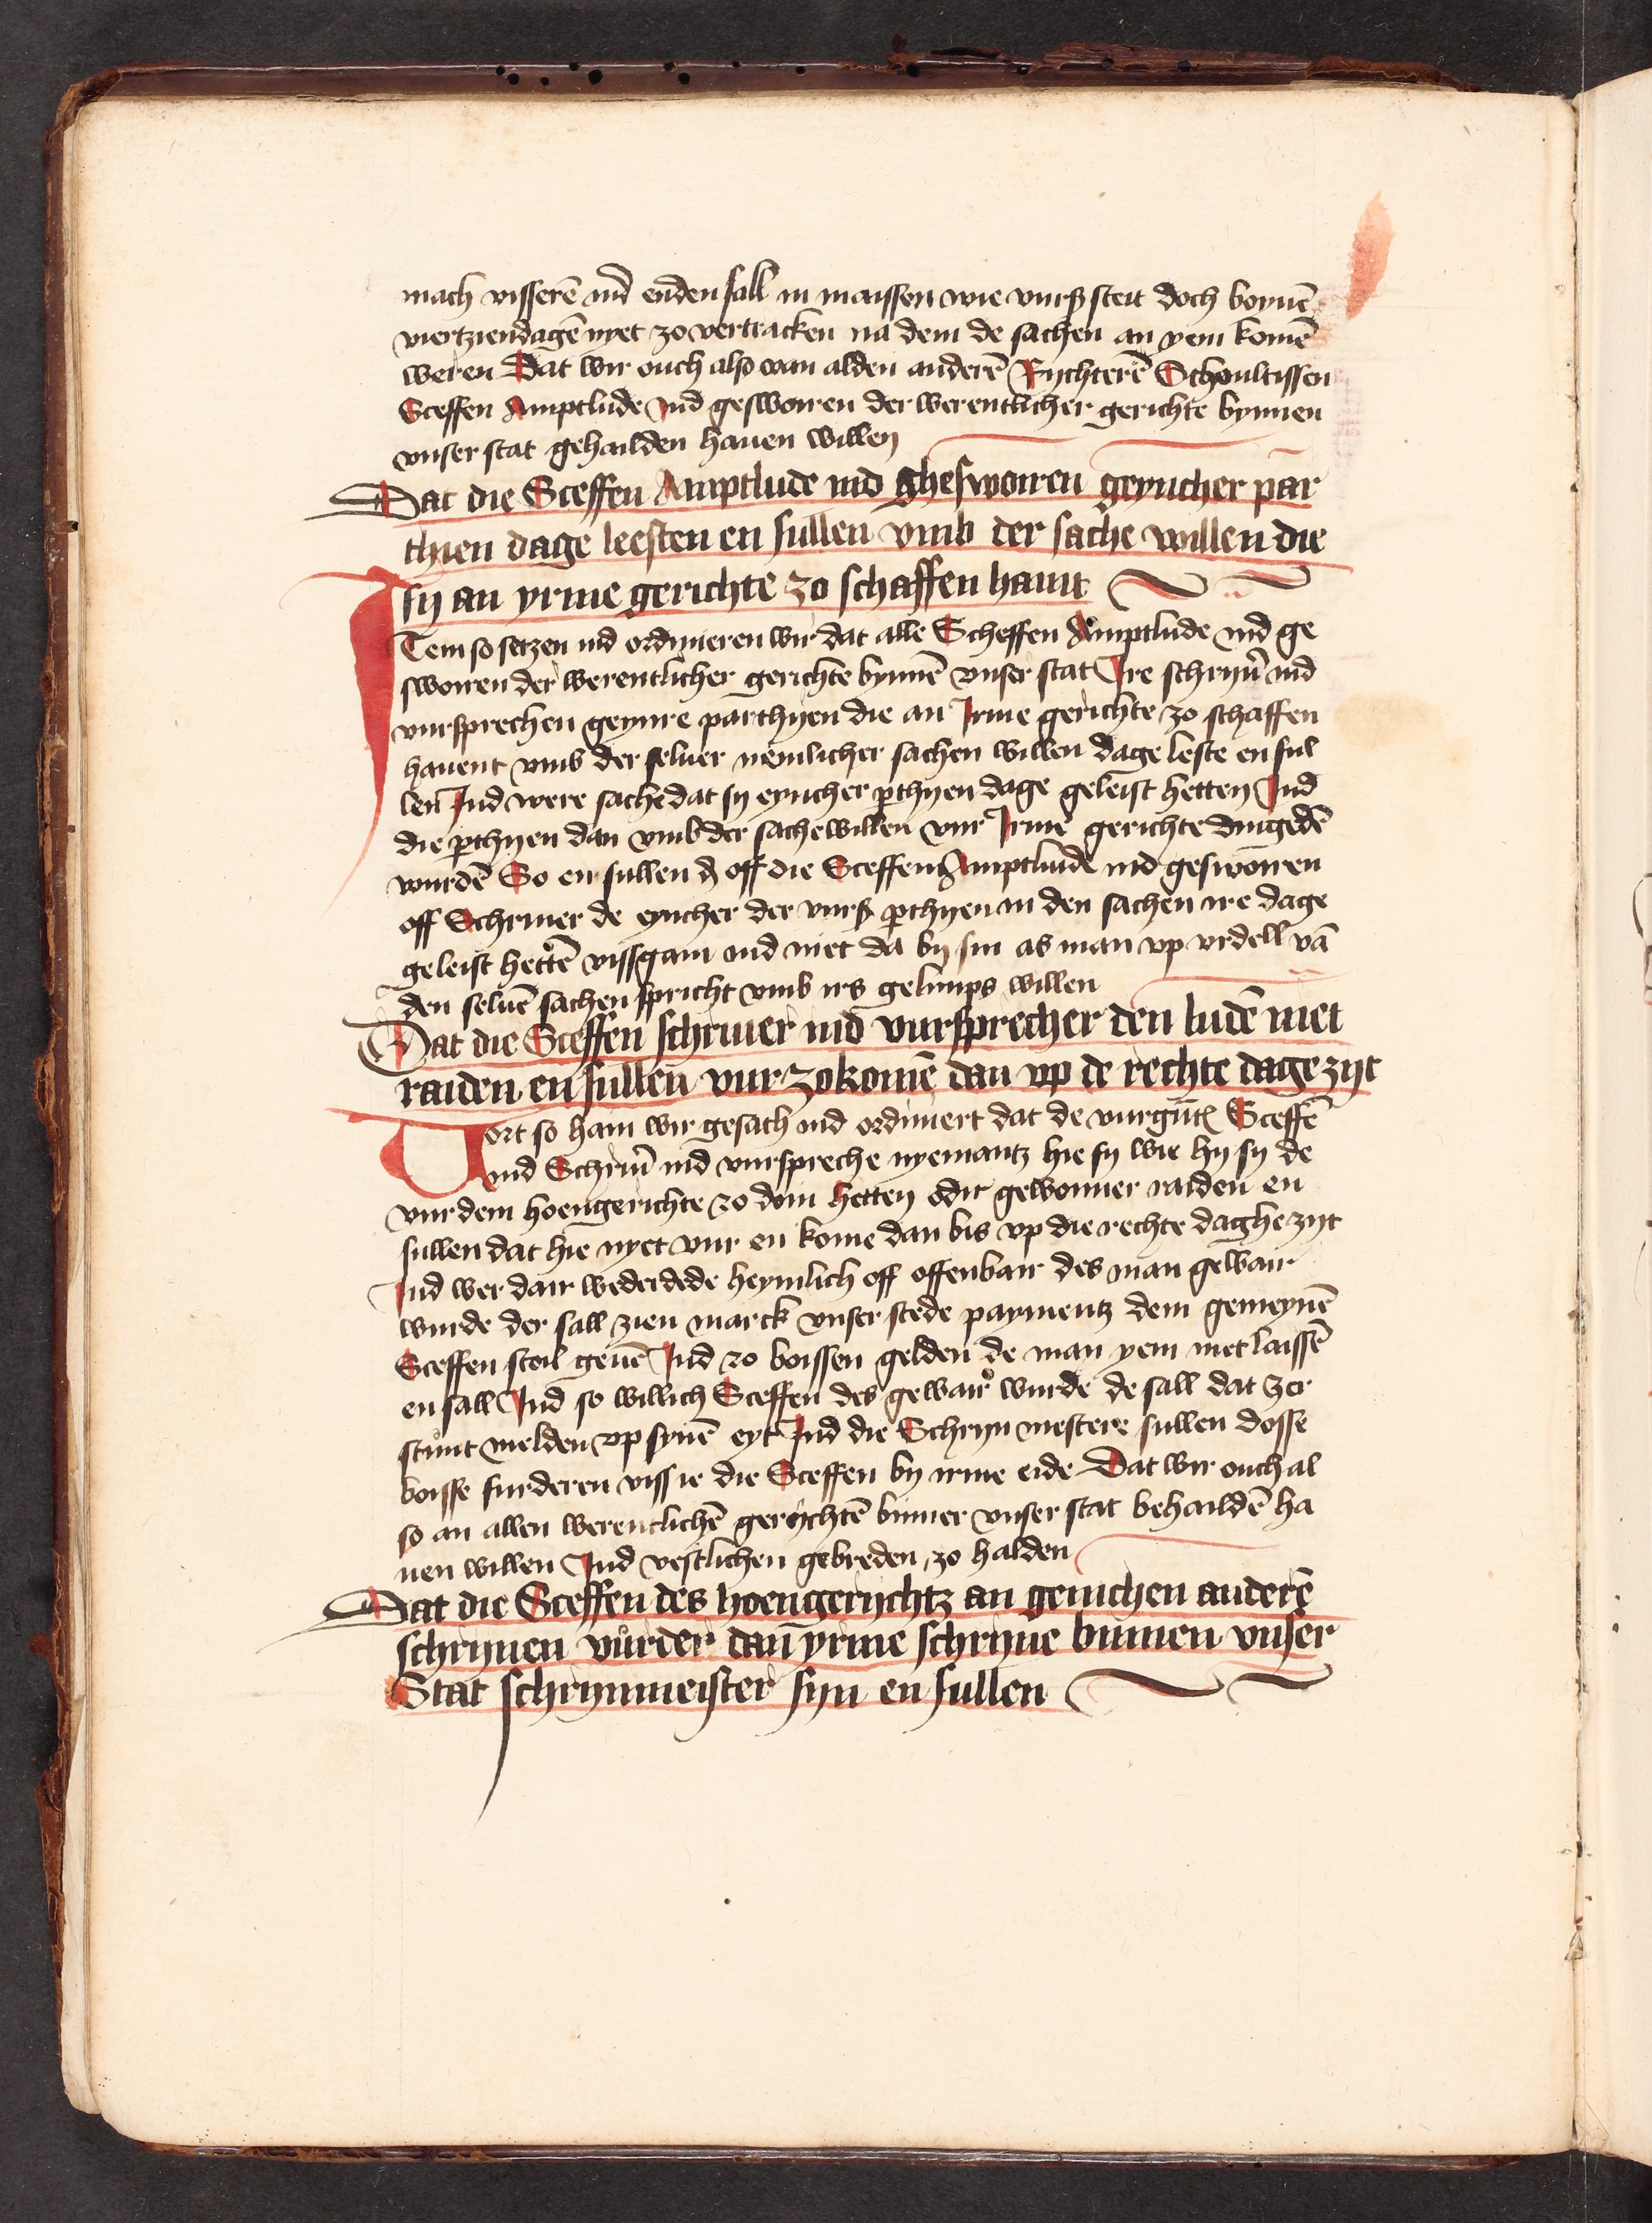 mach visserē ind enden sall in maissen wie vurß steit doch boyuē
viertziendagē nyet zo vertracken na dem de sachen an yem komē
weren Dat wir ouch also van alden anderē Rychterē Schoultissen
Sceffen Amptlude Ind geswoiren der werentlicher gerichte bynnen
vnser stat gehailden hauen willen
Dat die Sceffen Amptlude ind gheswoiren geyncher par
thien dage leesten en sullen vmb der sache willen die
sy an yrme gerichte zo schaffen haint
Item so setzen ind ordinieren wir dat alle Scheffen Amptlude ind ge
swoiren der werentlicher gerichte bynnē vnser stat Ire schryuer ind
vursprechen geynre parthyen die an Irme gerichte zo schaffen
hauent vmb der seluer nemlicher sachen willen dage leste en sul
len Ind were sache dat sy eyncher ꝑthyen dage geleist hetten Ind
die ꝑthyen dan vmb der sachewillen vur Irme gerichte dingedē
wurdē So en sullen off die Sceffen Amptlude ind geswoiren
off Schriuer de eyncher der vurß ꝑthyen in den sachen ire dage
geleist hettē vissgain ind niet da by sin as man vp vrdell vā
den seluē sachen spricht vmb irs gelimps willen
Dat die Sceffen schriuer ind vursprecher den ludē niet
raiden en sullen vur zokomē dan vp de rechte dagezijt
Vort so hain wir gesach ind ordiniert dat de vurgūt Sceffē
ind Schriu ind vurspreche nyemantz hie sy wie hy sy de
vur dem hoengerichte zo doin hetten odir gewonner raiden en
sullen dat hie nyet vur en kome dan bis vp die rechte daghe zijt
Ind wer dair wederdede heymlich off offenbair des man gewair
wurde der sall zien marck vnser stede paymentz dem gemeynē
Sceffen stoil geuē Ind zo boissen gelden de man yem niet laissē
en sall Ind so willich Sceffen des gewair wurde de sall dat zer
stunt melden vp synē eyt Ind die Schryn mestere sullen dosse
boisse furderen viss ie die Sceffen by irme eide Dat wir ouch al
so an allen werentlichē gerychtē binner vnser stat behaildē ha
uen willen Ind vestlichen gebieden zo halden
Dat die Sceffen des hoengerychtz an genichen anderē
schrynen vurder dan yrme schryne binnen vnser
Stat schrynmeister syn en sullen